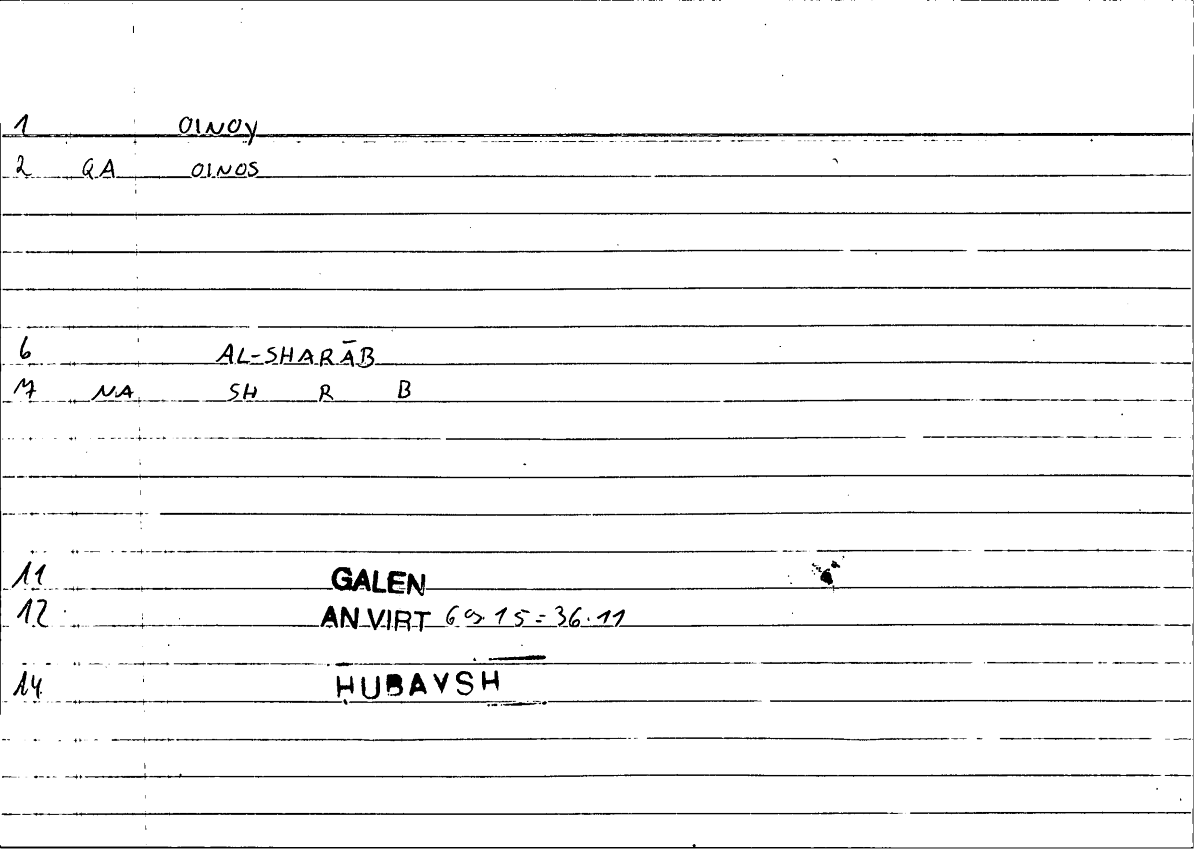 1 OINOY
2 QA OINOS
6 AL-SHARĀB
7 NA SH R B
11 GALEN
12 AN VIRT 69.15=36.11
14 ḤUBAYSH